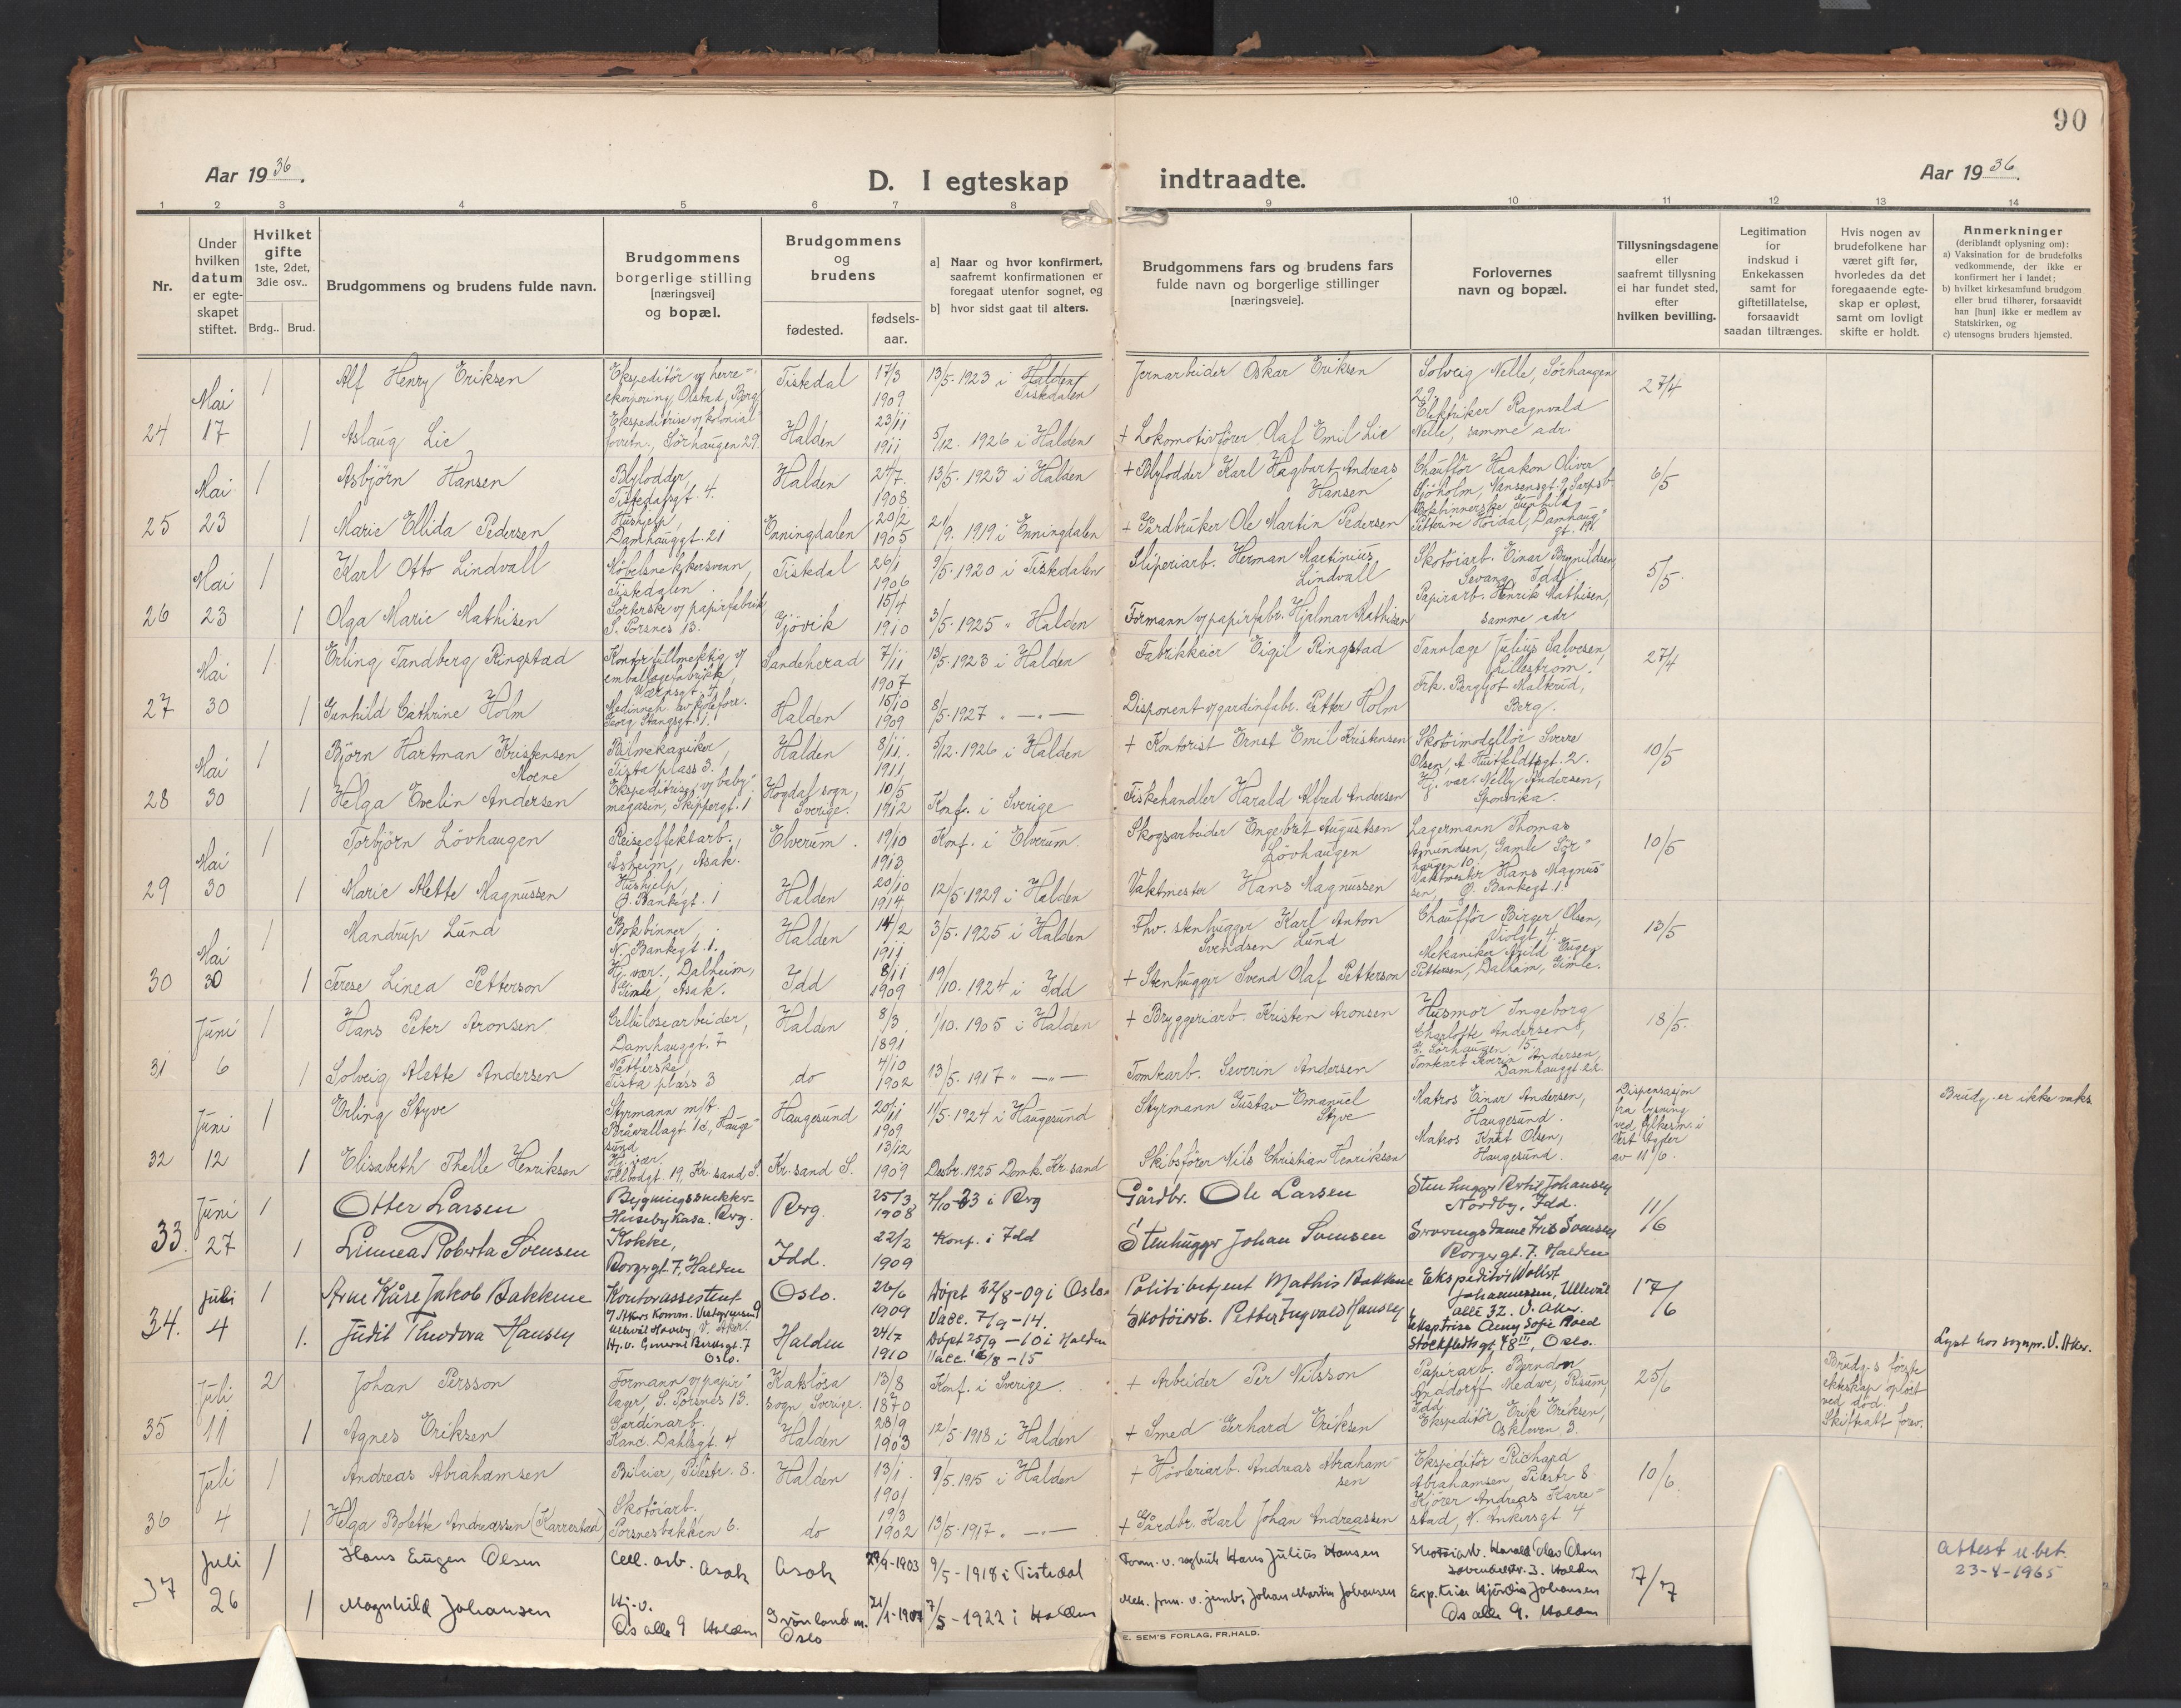 90
Aar 1936.
D. I egteskap
indtraadte.
Aar 1936.
1 2 3 4 5 6 7 8 9 10 11 12 13 14
Nr.
Under hvilken datum er egte-skapet stiftet.
Hvilket gifte 1ste, 2det, 3die osv..
Brdg.. Brud.
Brudgommens og brudens fulde navn.
Brudgommens borgerlige stilling [næringsvei] og bopæl.
Brudgommens og brudens
fødested.
fødsels-aar.
a] Naar og hvor konfirmert, saafremt konfirmationen er foregaat utenfor sognet, og
b] hvor sidst gaat til alters.
Brudgommens fars og brudens fars fulde navn og borgerlige stillinger [næringsveie].
Forlovernes navn og bopæl.
Tillysningsdagene eller saafremt tillysning ei har fundet sted, efter hvilken bevilling.
Legitimation for indskud i Enkekassen samt for giftetillatelse, forsaavidt saadan tiltrænges.
Hvis nogen av brudefolkene har været gift før, hvorledes da det foregaaende egte-skap er opløst, samt om lovligt skifte er holdt.
Anmerkninger (deriblandt oplysning om):
a) Vaksination for de brudefolks vedkommende, der ikke er konfirmert her i landet;
b) hvilket kirkesamfund brudgom eller brud tilhører, forsaavidt han [hun] ikke er medlem av Statskirken, og
c) utensogns bruders hjemsted.
24 Mai 17
1 Alf Henry Eriksen Ekspeditör v/ herre-ekvipering, Olstad, Berg Tistedal 17/3 1909 13/5-1923 i Halden Tistedalen Jernarbeider Oskar Eriksen Solveig Nelle, Sörhaugen 29 27/4
1 Aslaug Lie Ekspeditrise v/ kolonial forretn., Sörhaugen 29. Halden 23/11 1911 5/12. 1926 i Halden + Lokomotivförer Olaf Emil Lie Elektriker Ragnvald Nelle, samme adr.
25 Mai 23
1 Asbjörn Hansen Blylodder Tistedalsgt. 4. Halden 24/7. 1908 13/5. 1923 i Halden + Blylodder Karl Hagbart Andreas Hansen Chaufför Haakon Oliver Sjöholm, Nansensgt. 9, Sarpsb. 6/5
1 Marie Ellida Pedersen Hushjelp, Damhauggt. 21 Enningdalen 20/2 1905 21/9. 1919 i Enningdalen + Gardbruker Ole Martin Pedersen Bokbinnerske Gunhild Petterine Höidal, Damhaug-gt. 19
26 Mai 23
1 Karl Otto Lindvall Möbelsnekkersvenn, Tistedalen Tistedal 26/1 1906 9/5-1920 i Tistedalen Sliperiarb. Herman Martinius Lindvall Skotöiarb. Einar Brynildsen, Sevang, Idd 5/5.
1 Olga Marie Mathisen Sorterske v/ papirfabrik, S. Porsnes 13. Gjövik 15/4 1910 3/5-1925 " Halden Formann v/ papirfabr. Hjalmar Mathisen Papirarb. Henrik Mathisen, samme adr
27 Mai 30
1 Erling Tandberg Ringstad Kontorfullmektig v/ emballagefabrikk, Værnsgt. 4 Sandeherad 7/11 1907 13/5-1923 i Halden Fabrikkeier Eigil Ringstad Tannlæge Julius Salvesen, Lilleström. 27/4
1 Gunhild Cathrine Holm Georg Stangsgt. 1. Halden 15/10 1909 8/5-1927 " — " — Disponent v/ gardinfabr. Petter Holm Frk. Bergljot Malterud, Berg.
28 Mai 30
1 Björn Hartman Kristensen Moene Bilmekaniker, Tista plass 3. Halden 8/11. 1911 5/12. 1926 i Halden + Kontorist Ernst Emil Kristensen Skotöimodellör Sverre Olsen, A. Huitfeldtsgt. 2. 10/5
1 Helga Evelin Andersen Ekspeditrise v/ baby-magasin, Skippergt. 1 Högdal sogn, Sverige. 10/5 1912 Konf. i Sverige Fiskehandler Harald Alfred Andersen Hj. vær. Nelly Andersen, Sponvika.
29 Mai 30
1 Torbjörn Lövhaugen Reiseeffektarb., Åsheim, Asak. Elverum. 19/10 1913 Konf. i Elverum. Skogsarbeider Engebret Augustsen Lövhaugen Lagermann Thomas Amundsen, Gamle Sör-haugen 10. 10/5
1 Marie Alette Magnussen Hushjelp, Ø. Bankegt. 1 Halden 20/10 1914 12/5-1929 i Halden Vaktmester Hans Magnussen Vaktmester Hans Magnus-sen, Ø. Bankegt. 1.
30 Mai 30
1 Mandrup Lund Bokbinner, N. Bankegt. 1. Halden 14/2 1911 3/5. 1925 i Halden Fhv. stenhugger Karl Anton Svendsen Lund Chaufför Birger Olsen, Violgt. 4. 13/5
1 Terese Linea Petterson Hj. vær., Dalheim, Gimle, Asak. Idd 8/11 1909 19/10. 1924 i Idd + Stenhugger Svend Olaf Petterson Mekaniker Arild Eugen Pettersen, Dalheim, Gimle.
31 Juni 6
1 Hans Peter Aronsen Cellulosearbeider, Damhauggt. 7 Halden 8/3 1891 1/10. 1905 i Halden + Bryggeriarb. Kristen Aronsen Husmor Ingeborg Charlotte Andersen, G. Sörhaugen 15. 18/5.
1 Solveig Alette Andersen Nåtterske, Tista plass 3 do 4/10 1902 13/5. 1917 " — " — Tomtearb. Severin Andersen Tomtearb. Severin Andersen, Damhauggt.
32 Juni 12
1 Erling Styve Styrmann m/t. Bråvallagt. 1d, Hauge-sund Haugesund 20/11 1909 11/5-1924 i Haugesund Styrmann Gustav Emanuel Styve Matros Einar Andersen, Haugesund. Dispensasjon fra lysning ved fylkesm. i Vest Agder av 11/6. Brudg. er ikke vaks.
1 Elisabeth Thelle Henriksen Hj. vær. Tollbodgt. 19, Kr. sand S. Kr. sand S. 13/12 1909 Desbr. 1925 Domk. Kr. sand Skibsförer Nils Christian Henriksen Matros Knut Olsen, Haugesund.
33. Juni 27
1 Otter Larsen Bygningssnekker Huseby kasa. Berg. Berg. 25/3 1908 7/10-23 i Berg Gårdbr. Ole Larsen Stenhugger Johansen Nordby, Idd. 11/6
1 Linnea Roberta Svensen Kokke, Borgergt. 7. Halden Idd. 22/2 1909 Konf. i Idd Stenhugger Johan Svensen Svensen Borgergt. 7. Halden
34. Juli 4
1 Arne Kåre Jakob Bakkene Kontorassistent v/ Akers Komm. Ullevål Haveby V. Aker. Oslo. 20/6 1909 Döpt 22/8-09 i Oslo Vacc. 7/9-14. Politibetjent Mathis Bakkene Ekspeditör Johannessen, Ullevål alle 32. V. Aker. 17/6
1. Judit Theodora Hansen Hj. v. General Birchsgt. 7 Oslo. Halden 24/7 1910 Döpt 25/9-10 i Halden Vacc. 16/8-15 Skotöiarb. Petter Ingvald Hansen Ekspeditrise Anny Sofie Roed Stockfletsgt. 48 III, Oslo. Lyst hos sognpr. V. Aker.
35 Juli 11
2 Johan Persson Formann v/ papir-lager, S. Porsnes 13. Katslösa sogn, Sverige. 13/8 1870 Konf. i Sverige. + Arbeider Per Nilsson Papirarb. Medwe, Risum, Idd 25/6 Brudg-s förste ekteskap oplöst ved död. Skifteatt. forev.
1 Agnes Eriksen Gardinarb. Kanc. Dahlsgt. 4 Halden 28/9 1903 12/5-1918 i Halden + Smed Gerhard Eriksen Ekspeditör Erik Eriksen, Oskleven 3.
36 Juli 4
1 Andreas Abrahamsen Bileier, Pilestr. 8. Halden 13/1. 1901 9/5. 1915 i Halden + Hövleriarb. Andreas Abraham-sen Ekspeditör Richard Abrahamsen Pilestr 8 10/6
1 Helga Bolette Andreassen (Karrestad) Skotöiarb. Porsnesbakken 6. do 19/3 1902 13/5-1917 " — " — + Gårdbr. Karl Johan Andreassen Kjörer Andreas Karre-stad, N. Ankersgt 4
37 Juli 26
1 Hans Eugen Olsen Cell. arb. Asak Asak 29/9-1903 9/5-1918 i Tistedal Form. v. Hans Julius Hansen Skotöiarb. Harald Olav Olsen 3. Halden 7/7 Attest u. bet. 23-4-1965
1 Magnhild Johansen Hj.-v. Os alle 9 Halden Grönland m. Oslo 21/1-1907 7/5-1922 i Halden Mek. form. v. jernb. Johan Martin Johansen Exp.trise Hjördis Johansen Os alle 9. Halden
E. SEM'S FORLAG, FR.HALD.